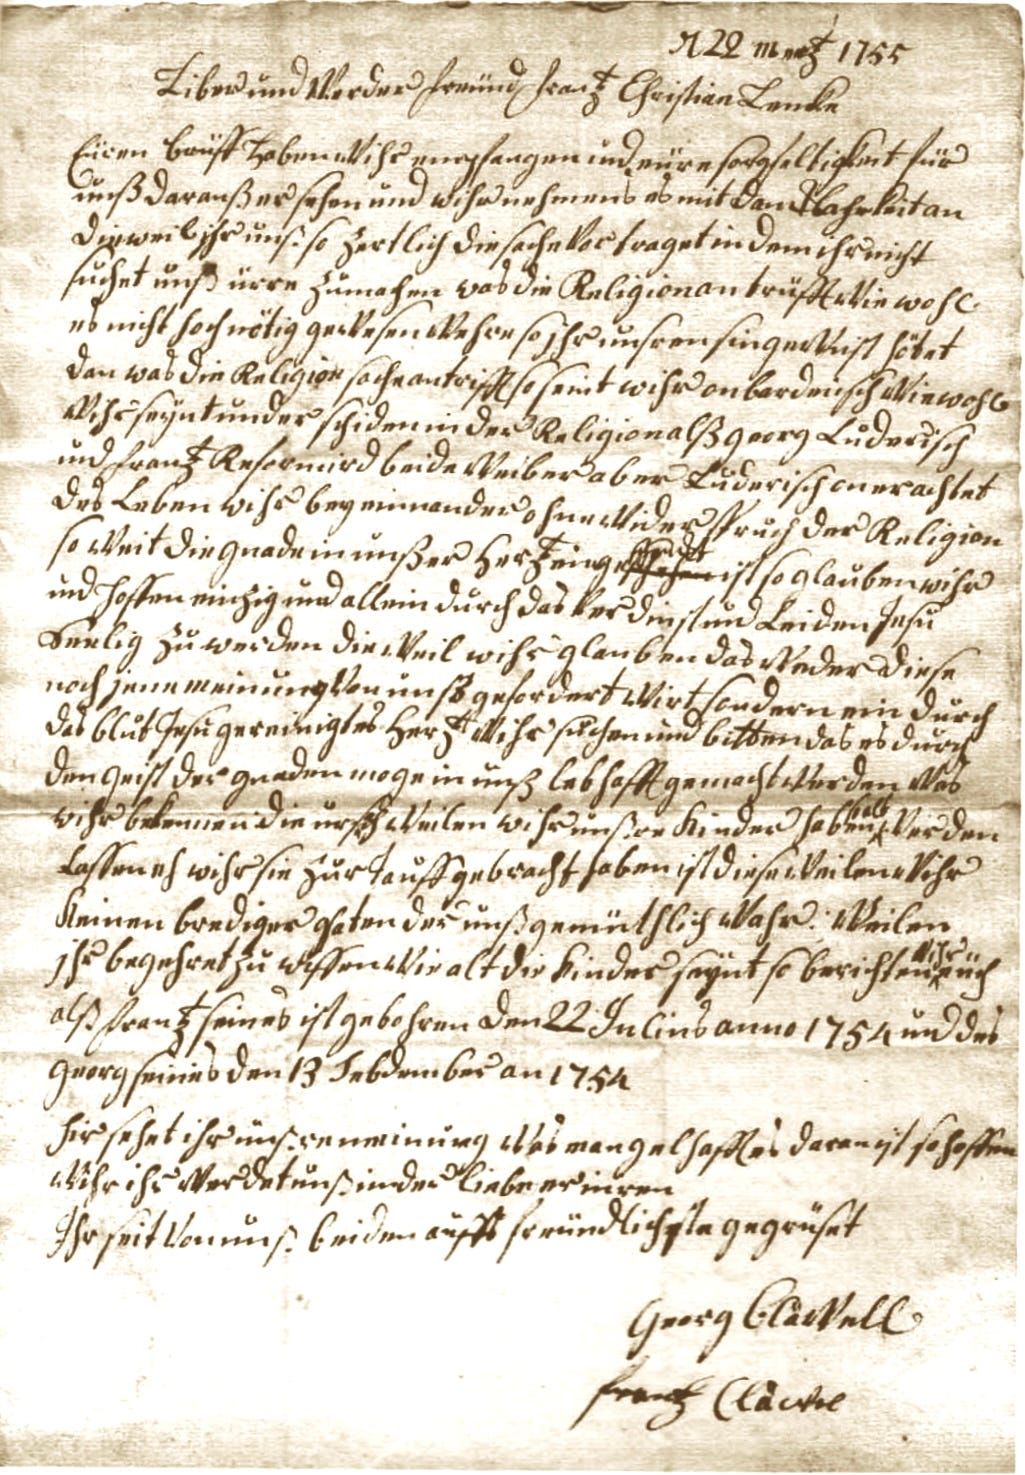 A 22 Mertz 1755
Liber und Werder freünd frantz Christian Lemke
Eüren brüff Haben Wihr empfangen und eüre sorgfaltigkeit für
unß darauß er sehen und wihr nehmens es mit danckbahrkeit an
Dieweil ihr unß so Zertlich die sache Vor traget in dem ihr nicht
suchet unß ürre Zu machen was die Religion an trüfft Wie wohl
es nicht hoch nötig geWesen Wehre so ihr unsren sin geWust hötet
dan was die Religion sache antrifft so seint wihr onbardeusch Wiewohl
Wihr seynt under schiden in der Religion alß georg Luderisch
und frantz Reformird beide Weiber aber Luderisch onerachtet
des Leben wihr bey einnander ohne Wider spruch der Religion
so Weit die gnade in unßer Hertz ein ist so glauben wihr
und hoffen einzig und allein durch das Verdinst und Leiden Jesu
Seelig Zu werden die Weil wihr glauben das Weder diese
noch jene meinung Von unß gefordert Wirt sondern ein durch
das blut Jesu gereinigtes Hertz Wihr suchen und bitten das es durch
den geist der gnaden moge in unß lebhafft gemacht Werden Was
wihr bekennen die ursach Weilen wihr unßre Kinder haben alt Werden
Lassen eh wihr sie Zur tauff gebracht haben ist diese Weilen Wihr
Keinen brediger haten der unß gemüthlich Wahr. Weilen
ihr begehret zu wissen Wie alt die Kinder seynt so berichten Wihr eüch
alß frantz seines ist gebohren den 22 Julius anno 1754 und des
georg seines den 13 Sebdember an 1754
hir sehet ihr unßre meinung Was mangelhafftes daran ist so hoffen
Wihr ihr Werdet unß in der liebe er inren
Ihr seit Von unß beiden auffs freündlichste gegrüset
Georg Clawell
frantz Clawel